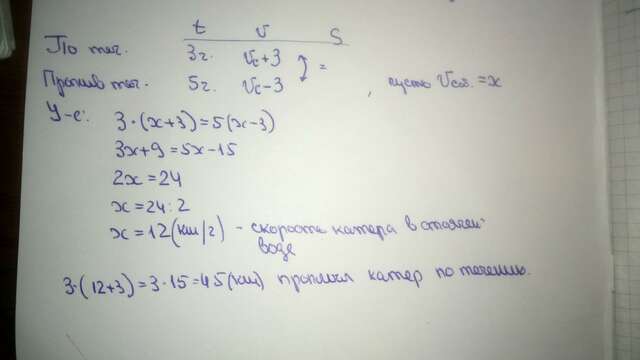 t v S
По теч. 3ч. Vc+3
Против теч. 5ч. Vc-3 = , пусть Vсоб. = x
У-е: 3·(x+3)=5(x-3)
3x+9=5x-15
2x=24
x=24:2
x=12(км/ч) - скорость катера в стоячей
воде
3·(12+3)=3·15=45(км) проплыл катер по течению.